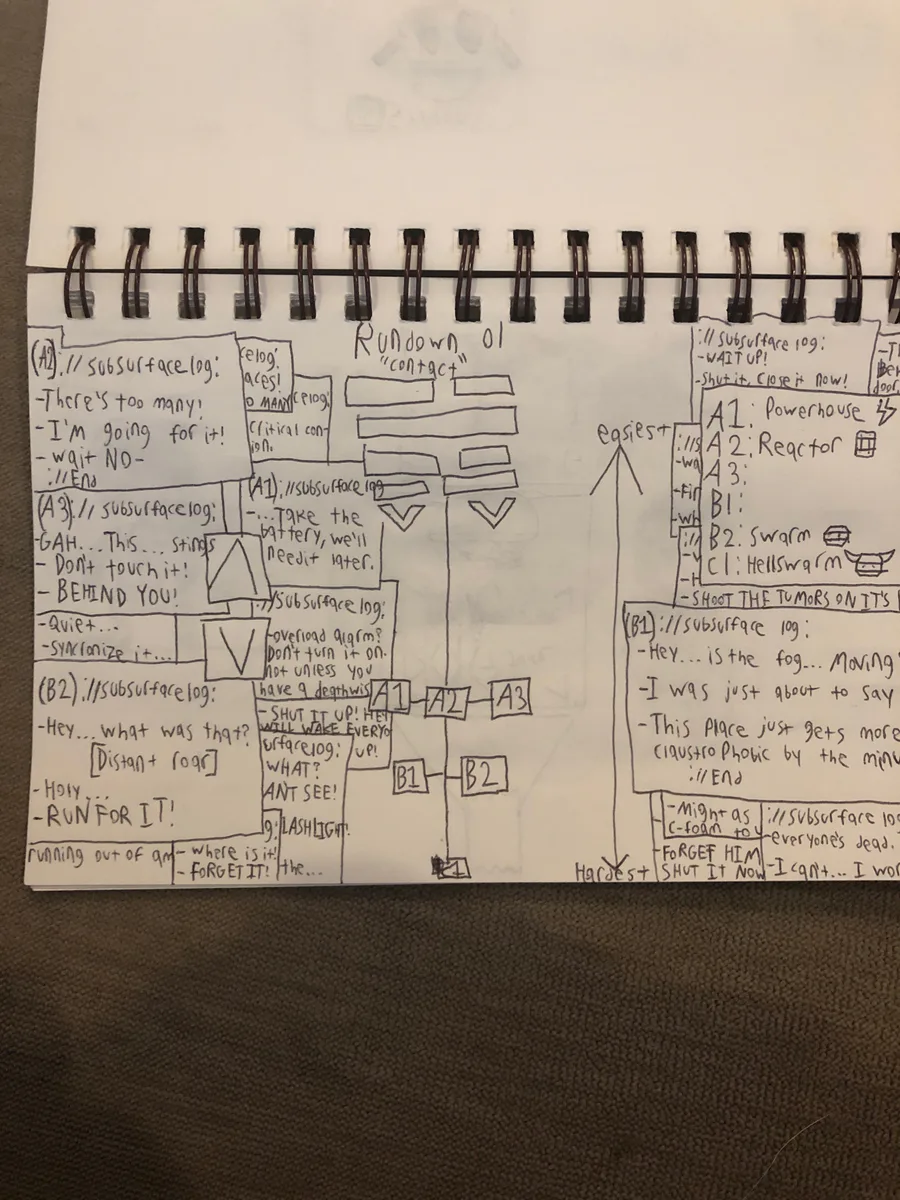 Rundown 01
"contact"
(A2)://subsurface log:
-There's too many!
-I'm going for it!
-wait NO-
://End
celog:
aces!
O MANY
celog:
critical con-
ion.
(A3)://subsurface log:
-GAH... This... stings
- Don't touch it!
- BEHIND YOU!
-Quiet...
-syncronize it...
(A1)://subsurface log
-...Take the
battery, we'll
need it later.
://subsurface log:
-overload alarm?
Don't turn it on.
not unless you
have a deathwis
- SHUT IT UP! HEY
WILL WAKE EVERYO
UP!
(B2)://subsurface log:
-Hey... what was that?
[Distant roar]
- Holy...
-RUN FOR IT!
urface log:
WHAT?
ANT SEE!
g:
LASHLIGHT!
running out of am
- where is it!
- FORGET IT!
the...
A1
A2
A3
B1
B2
C1
easiest
Hardest
://subsurface log:
-WAIT UP!
-Shut it, close it now!
-Th
door
A1: Powerhouse
A2: Reactor
A3:
B1:
B2: Swarm
C1: Hellswarm
://s
-wa
-Fir
-wh
://
-H
-SHOOT THE TUMORS ON IT'S
(B1)://subsurface log:
-Hey... is the fog... Moving
-I was just about to say
-This Place just gets more
claustrophobic by the minu
://End
-Might as
C-foam to
-FORGET HIM
SHUT IT NOW
://subsurface log
-everyone's dead.
-I can't... I wor